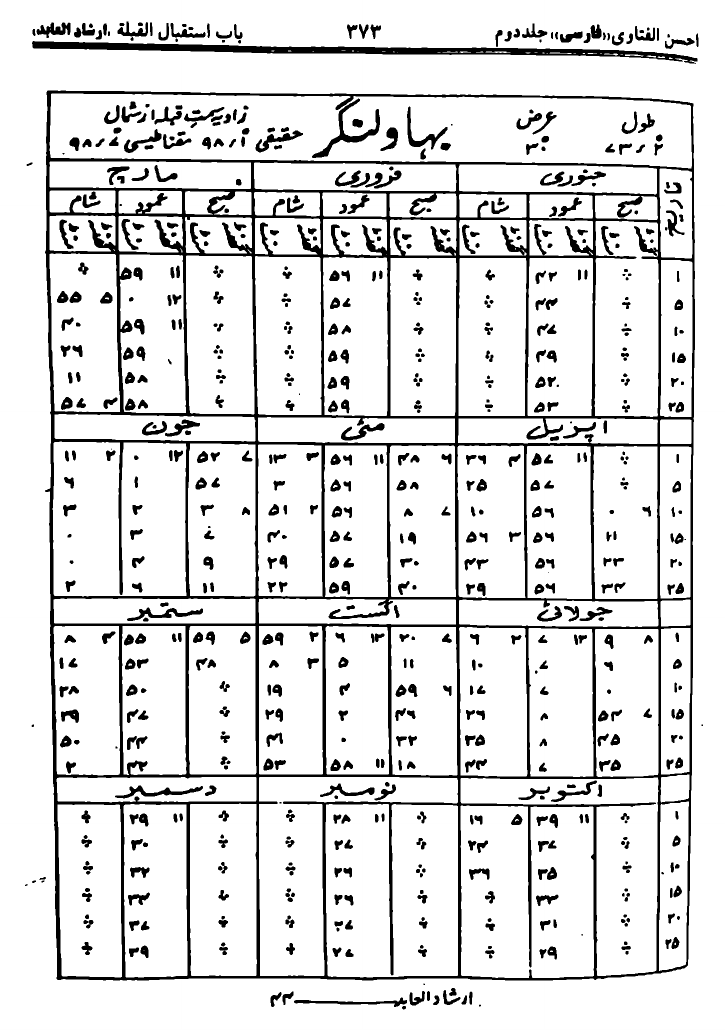 احسن الفتاوی «فارسی» جلد دوم ۳۷۳ باب استقبال القبلة «ارشاد العابد»
طول عرض بہاولنگر زاویہ سمت قبلہ از شمال
۷۳٫۲° ۳۰° حقیقی ۹۸٫۱° مقناطیسی ۹۸٫۷°
تاریخ جنوری فروری مارچ
صبح عمود شام صبح عمود شام صبح عمود شام
گھنٹہ منٹ گھنٹہ منٹ گھنٹہ منٹ گھنٹہ منٹ گھنٹہ منٹ گھنٹہ منٹ گھنٹہ منٹ گھنٹہ منٹ گھنٹہ منٹ
۱ ÷ ۱۱ ۴۲ ÷ ÷ ۱۱ ۵۶ ÷ ÷ ۱۱ ۵۹ ÷
۵ ÷ ۴۴ ÷ ÷ ۵۷ ÷ ÷ ۱۲ ۰ ۵ ۵۵
۱۰ ÷ ۴۷ ÷ ÷ ۵۸ ÷ ÷ ۱۱ ۵۹ ۴۰
۱۵ ÷ ۴۹ ÷ ÷ ۵۹ ÷ ÷ ۵۹ ۲۶
۲۰ ÷ ۵۲ ÷ ÷ ۵۹ ÷ ÷ ۵۸ ۱۱
۲۵ ÷ ۵۳ ÷ ÷ ۵۹ ÷ ÷ ۵۸ ۴ ۵۷
اپریل مئی جون
۱ ÷ ۱۱ ۵۷ ۴ ۳۶ ۶ ۴۸ ۱۱ ۵۶ ۳ ۱۳ ۷ ۵۲ ۱۲ ۰ ۲ ۱۱
۵ ÷ ۵۷ ۲۵ ۵۸ ۵۶ ۳ ۵۷ ۱ ۶
۱۰ ۶ ۰ ۵۶ ۱۰ ۷ ۸ ۵۶ ۲ ۵۱ ۸ ۳ ۲ ۳
۱۵ ۱۱ ۵۶ ۳ ۵۶ ۱۹ ۵۷ ۴۰ ۷ ۳ ۰
۲۰ ۲۳ ۵۶ ۴۳ ۳۰ ۵۷ ۲۹ ۹ ۴ ۰
۲۵ ۳۴ ۵۶ ۲۹ ۴۰ ۵۹ ۲۲ ۱۱ ۶ ۲
جولائی اگست ستمبر
۱ ۸ ۹ ۱۲ ۷ ۲ ۶ ۷ ۲۰ ۱۲ ۶ ۲ ۵۹ ۵ ۵۹ ۱۱ ۵۵ ۴ ۸
۵ ۶ ۷ ۱۰ ۱۱ ۵ ۳ ۸ ۴۸ ۵۳ ۱۷
۱۰ ۰ ۷ ۱۷ ۶ ۵۹ ۴ ۱۹ ÷ ۵۰ ۲۸
۱۵ ۷ ۵۴ ۸ ۲۶ ۴۶ ۲ ۲۹ ÷ ۴۷ ۳۹
۲۰ ۴۵ ۸ ۳۵ ۳۲ ۰ ۴۱ ÷ ۴۴ ۵۰
۲۵ ۳۵ ۷ ۴۴ ۱۸ ۱۱ ۵۸ ۵۳ ÷ ۴۲ ۲
اکتوبر نومبر دسمبر
۱ ÷ ۱۱ ۳۹ ۵ ۱۶ ÷ ۱۱ ۲۸ ÷ ÷ ۱۱ ۲۹ ÷
۵ ÷ ۳۷ ۲۴ ÷ ۲۷ ÷ ÷ ۳۰ ÷
۱۰ ÷ ۳۵ ۳۶ ÷ ۲۶ ÷ ÷ ۳۲ ÷
۱۵ ÷ ۳۳ ÷ ÷ ۲۶ ÷ ÷ ۳۴ ÷
۲۰ ÷ ۳۱ ÷ ÷ ۲۷ ÷ ÷ ۳۷ ÷
۲۵ ÷ ۲۹ ÷ ÷ ۲۷ ÷ ÷ ۳۹ ÷
ارشاد العابد ـــــــــ ۴۴